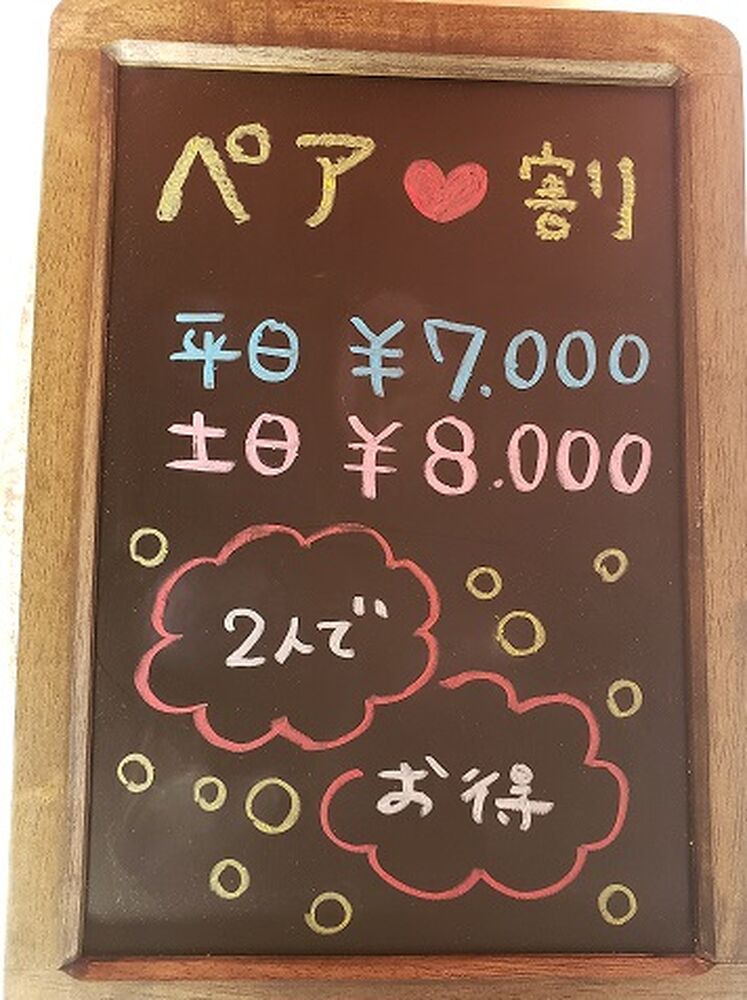 ペア♥割
平日 ¥7.000
土日 ¥8.000
2人で
お得